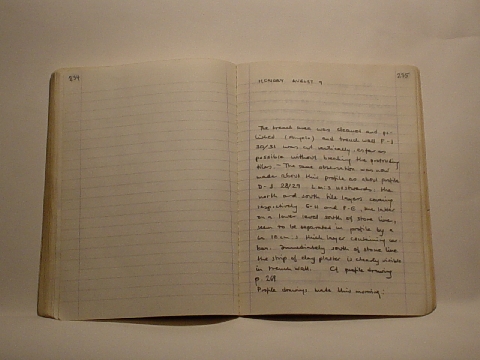 234
235
TUESDAY AUGUST 4
The trench area was cleaned and po-
lished (roughly) and trench wall F-J
30/31 was cut vertically, as far as
possible without breaking the protruding
tiles. - The same observation was now
made about this profile as about profile
D- 28/29 westwards: the
north and south tile layers covering
respectively G-H and F-G, the latter
on a lower level south of stone line,
seem to be separated in profile by a
10 cm.s thick layer containing car-
bon. Immediately south of stone line
the strip of clay plaster is clearly visible
in trench wall. Cf profile drawing
p. 269
Profile drawings made this morning: